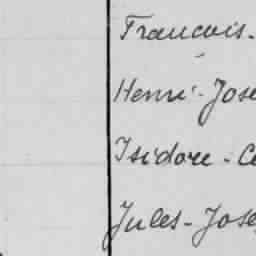 Francois-
Henri-Jose
Isidore-Ce
Jules-Jose